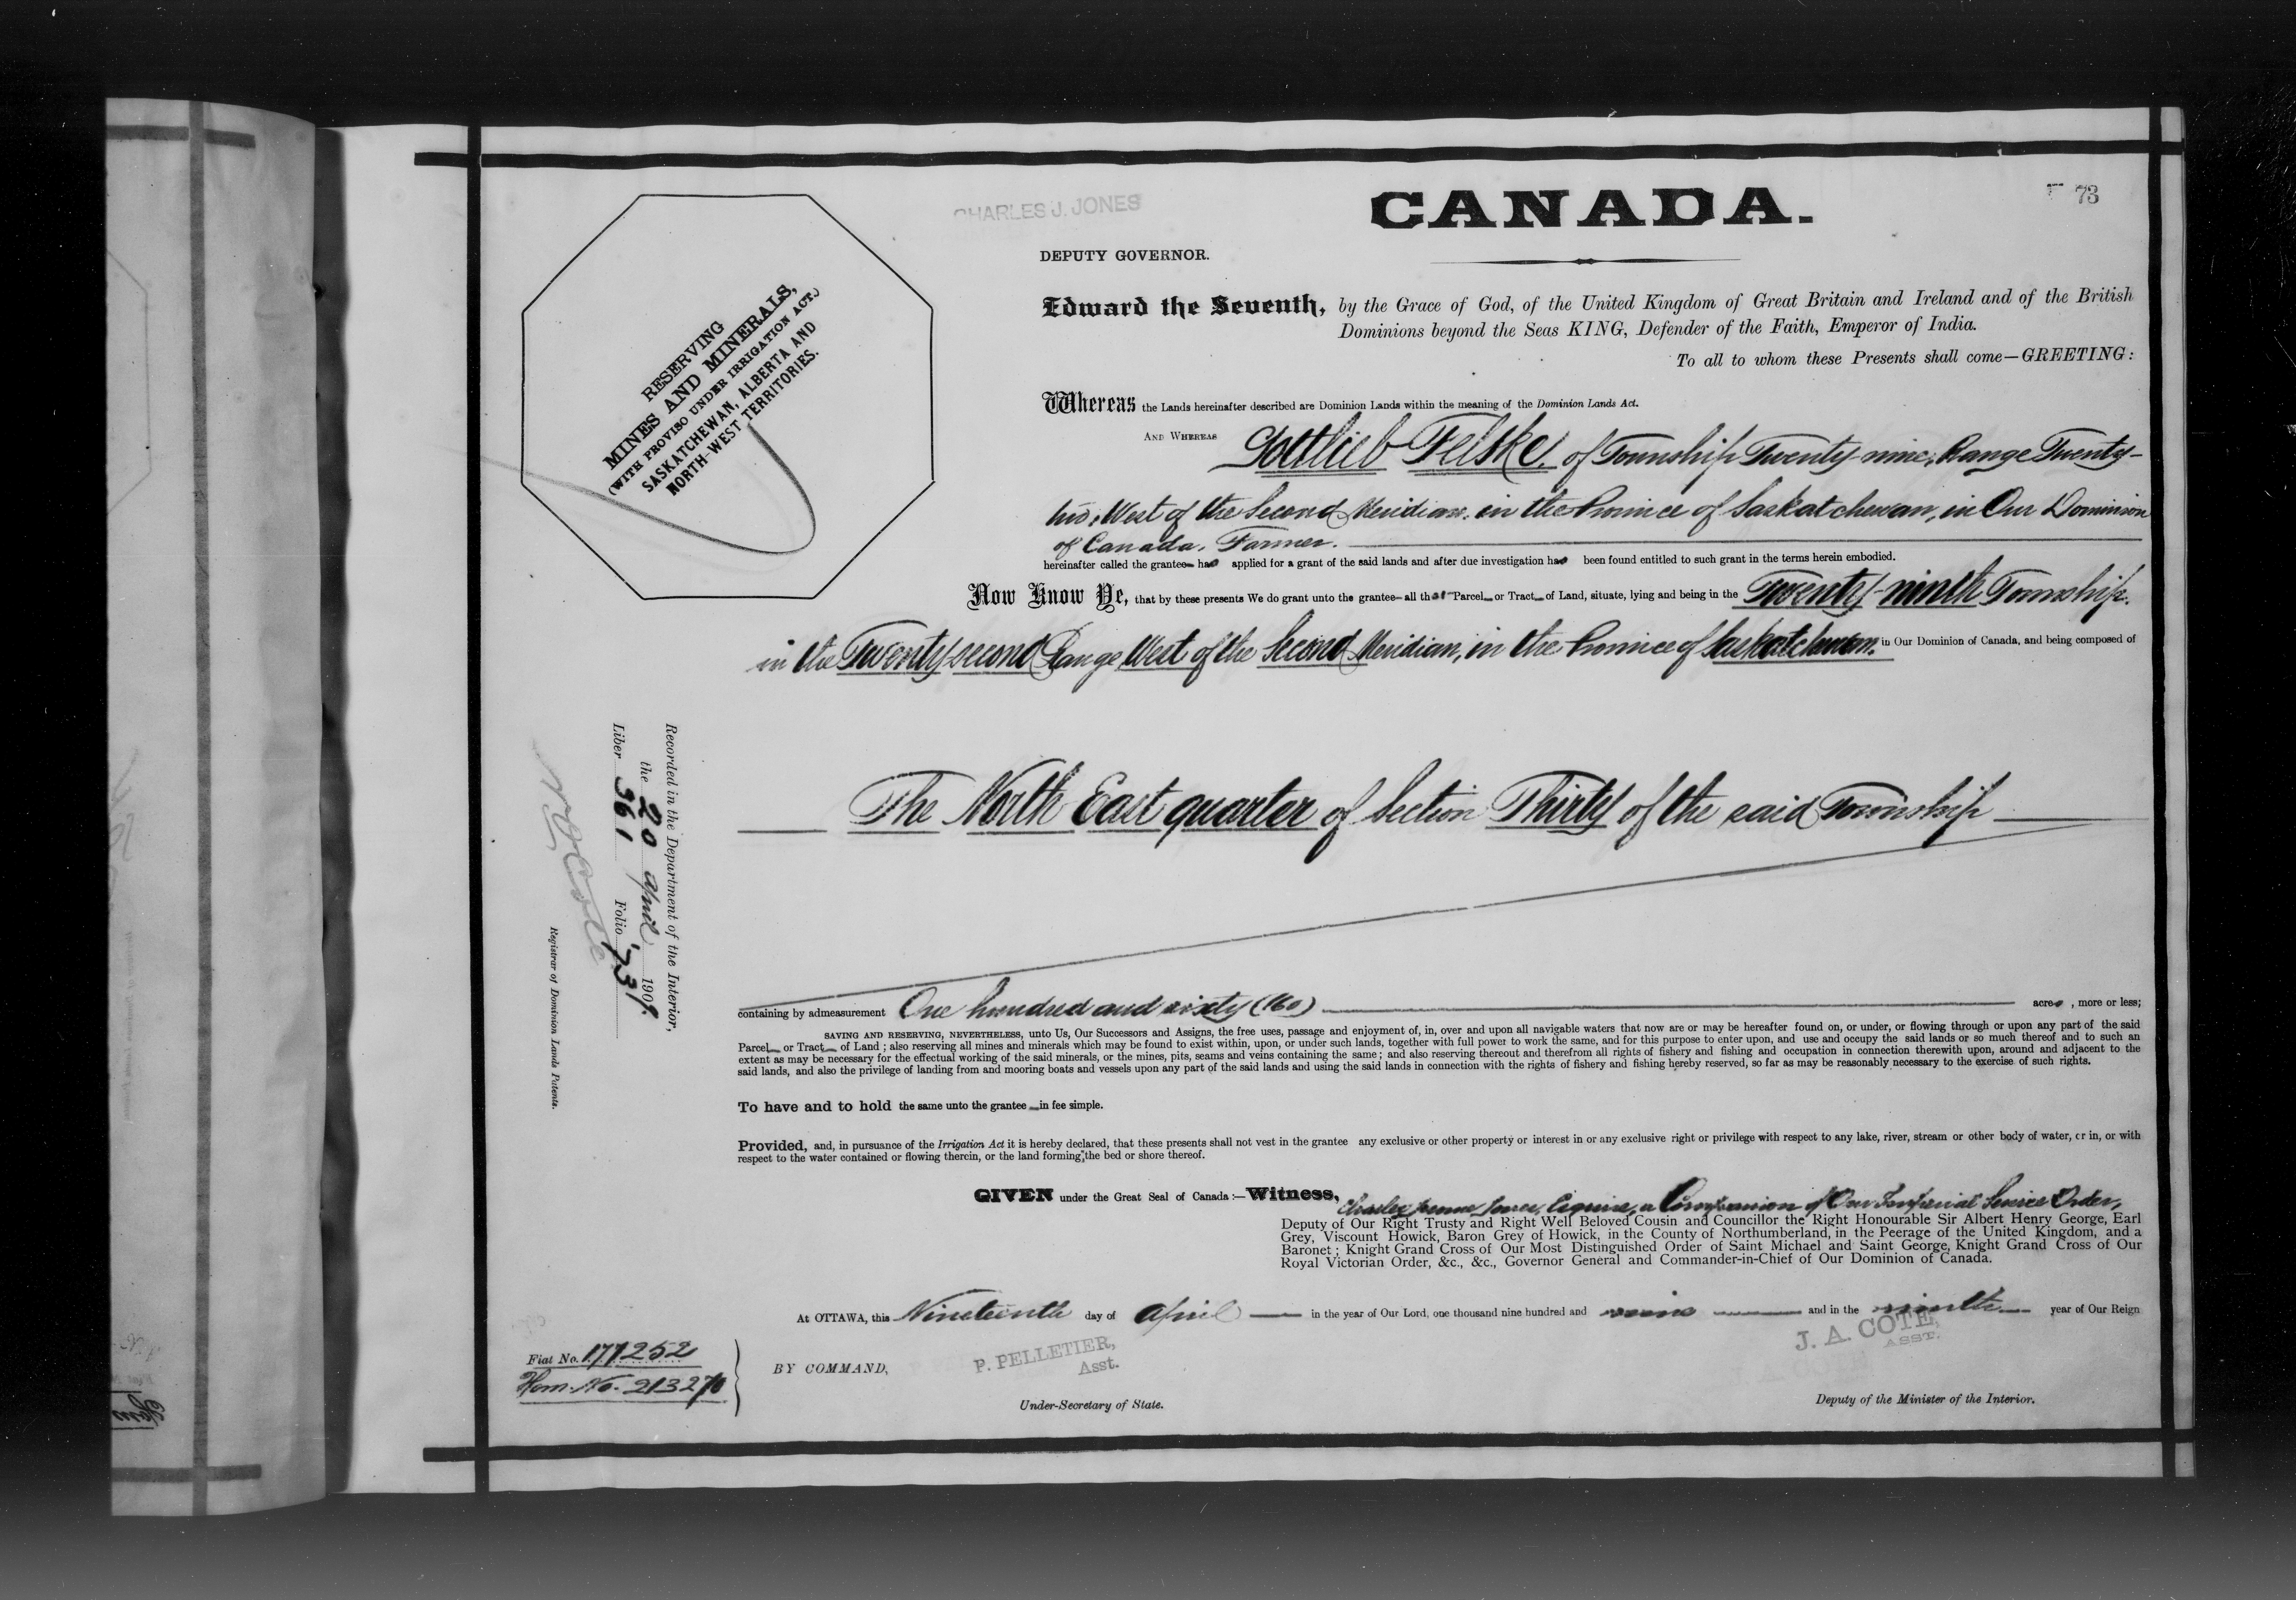 73
CHARLES J. JONES
CANADA.
DEPUTY GOVERNOR.
RESERVING
MINES AND MINERALS,
(WITH PROVISO UNDER IRRIGATION ACT.)
SASKATCHEWAN, ALBERTA AND
NORTH-WEST TERRITORIES.
Edward the Seventh, by the Grace of God, of the United Kingdom of Great Britain and Ireland and of the British
Dominions beyond the Seas KING, Defender of the Faith, Emperor of India.
To all to whom these Presents shall come—GREETING:
Whereas the Lands hereinafter described are Dominion Lands within the meaning of the Dominion Lands Act.
AND WHEREAS Gottlieb Felske, of Township Twenty-nine, Range Twenty-
two, West of the Second Meridian, in the Province of Saskatchewan, in Our Dominion
of Canada, Farmer.
hereinafter called the grantee has applied for a grant of the said lands and after due investigation has been found entitled to such grant in the terms herein embodied.
Now Know Ye, that by these presents We do grant unto the grantee all that Parcel or Tract of Land, situate, lying and being in the Twenty-ninth Township,
in the Twenty-second Range West of the Second Meridian, in the Province of Saskatchewan, in Our Dominion of Canada, and being composed of
The North East quarter of Section Thirty of the said Township
Recorded in the Department of the Interior,
the 20 April 1909.
Liber 361 Folio 73
Registrar of Dominion Lands Patents.
containing by admeasurement One hundred and sixty (160) acres, more or less;
SAVING AND RESERVING, NEVERTHELESS, unto Us, Our Successors and Assigns, the free uses, passage and enjoyment of, in, over and upon all navigable waters that now are or may be hereafter found on, or under, or flowing through or upon any part of the said
Parcel or Tract of Land; also reserving all mines and minerals which may be found to exist within, upon, or under such lands, together with full power to work the same, and for this purpose to enter upon, and use and occupy the said lands or so much thereof and to such an
extent as may be necessary for the effectual working of the said minerals, or the mines, pits, seams and veins containing the same; and also reserving thereout and therefrom all rights of fishery and fishing and occupation in connection therewith upon, around and adjacent to the
said lands, and also the privilege of landing from and mooring boats and vessels upon any part of the said lands and using the said lands in connection with the rights of fishery and fishing hereby reserved, so far as may be reasonably necessary to the exercise of such rights.
To have and to hold the same unto the grantee in fee simple.
Provided, and, in pursuance of the Irrigation Act it is hereby declared, that these presents shall not vest in the grantee any exclusive or other property or interest in or any exclusive right or privilege with respect to any lake, river, stream or other body of water, or in, or with
respect to the water contained or flowing therein, or the land forming the bed or shore thereof.
GIVEN under the Great Seal of Canada:—Witness, Charles Jones, Esquire, a Companion of Our Imperial Service Order,
Deputy of Our Right Trusty and Right Well Beloved Cousin and Councillor the Right Honourable Sir Albert Henry George, Earl
Grey, Viscount Howick, Baron Grey of Howick, in the County of Northumberland, in the Peerage of the United Kingdom, and a
Baronet; Knight Grand Cross of Our Most Distinguished Order of Saint Michael and Saint George, Knight Grand Cross of Our
Royal Victorian Order, &c., &c., Governor General and Commander-in-Chief of Our Dominion of Canada.
At OTTAWA, this Nineteenth day of April in the year of Our Lord, one thousand nine hundred and nine and in the ninth year of Our Reign
Fiat No. 171252
Hom. No. 213270
BY COMMAND,
P. PELLETIER,
Asst.
Under-Secretary of State.
J. A. COTE,
ASST.
Deputy of the Minister of the Interior.